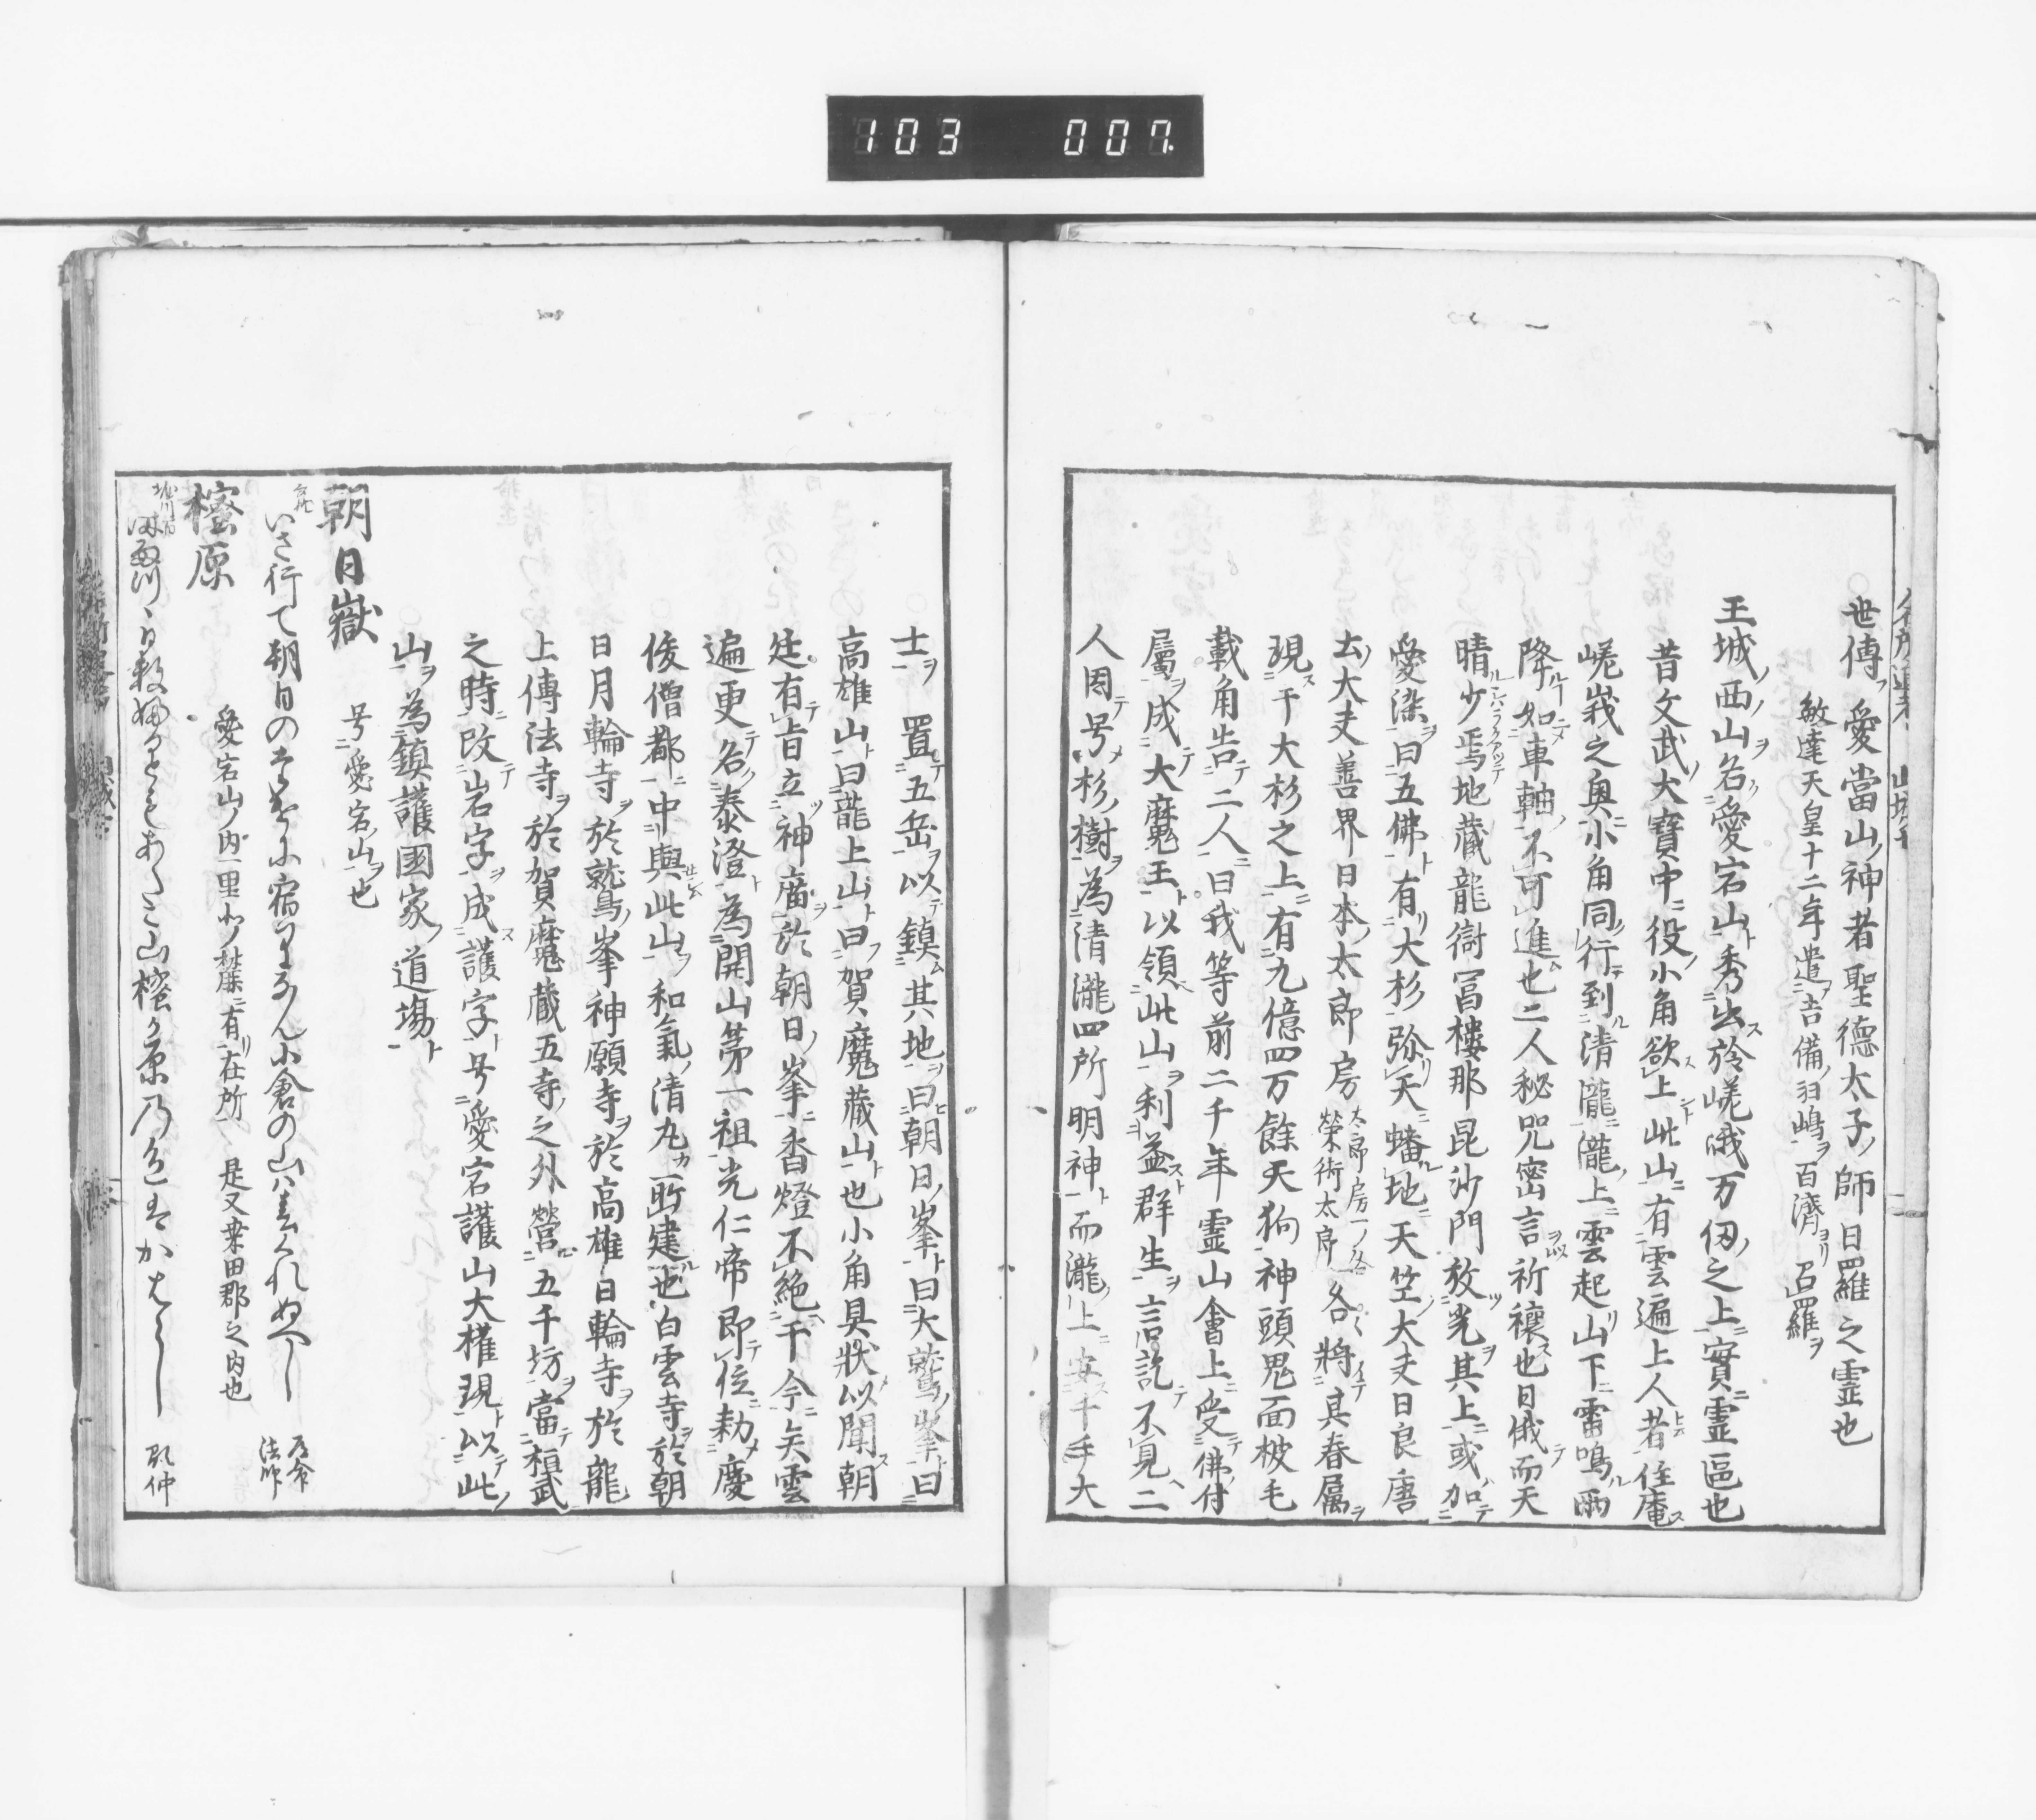 103 007
世傳愛當山神者聖德太子師日羅之霊也
敏達天皇十二年遣吉備羽嶋百濟召日羅
王城西山名愛宕山秀出於嵯峨万仭之上實霊區也
昔文武大寶中役小角欲上此山有雲遍上人者住庵
嵯峩之奥小角同行到清瀧瀧上雲起山下雷鳴雨
降如車軸不可進也二人秘咒密言祈禳也日俄而天
晴少焉地藏龍樹冨樓那昆沙門放光其上或加
愛染曰五佛有大杉弥天蟠地天竺大夫日良唐
土大夫善界日本太郎房太郎房一名榮術太郎各將其眷属
現于大杉之上有九億四万餘天狗神頭鬼面被毛
載角告二人曰我等前二千年霊山會上受佛付
属成大魔王以領此山利益群生言訖不見二
人因号杉樹為清瀧四所明神而瀧上安千手大
士置五岳以鎮其地曰朝日峯曰大鷲峯曰
高雄山曰龍上山曰賀魔藏山也小角具狀以聞朝
廷有旨立神廟於朝日峯香燈不絶于今矣雲
遍更名泰澄為開山第一祖光仁帝即位勅慶
俊僧都中興此山和氣清丸所建也白雲寺於朝
日月輪寺於鷲峯神願寺於高雄日輪寺於龍
上傳法寺於賀魔藏五寺之外營五千坊當桓武
之時改岩字成護字号愛宕護山大權現以此
山為鎮護國家道場
朝日嶽
号愛宕山也
いさ行て朝日のたけに宿りなん小倉の山は
法師
樒原
愛宕山ノ内一里
有在所
是又桒田郡之内也
山樒か原乃